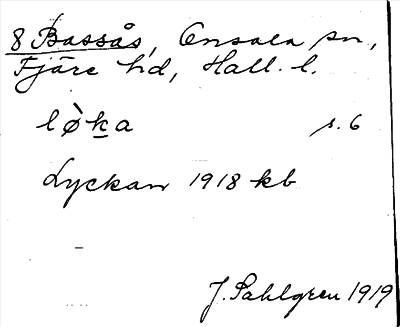 8 Bassås, Onsala sn,
Fjäre hd, Hall. l.
lø̀ḵa s. 6
Lyckan 1918 kb
J. Sahlgren 1919